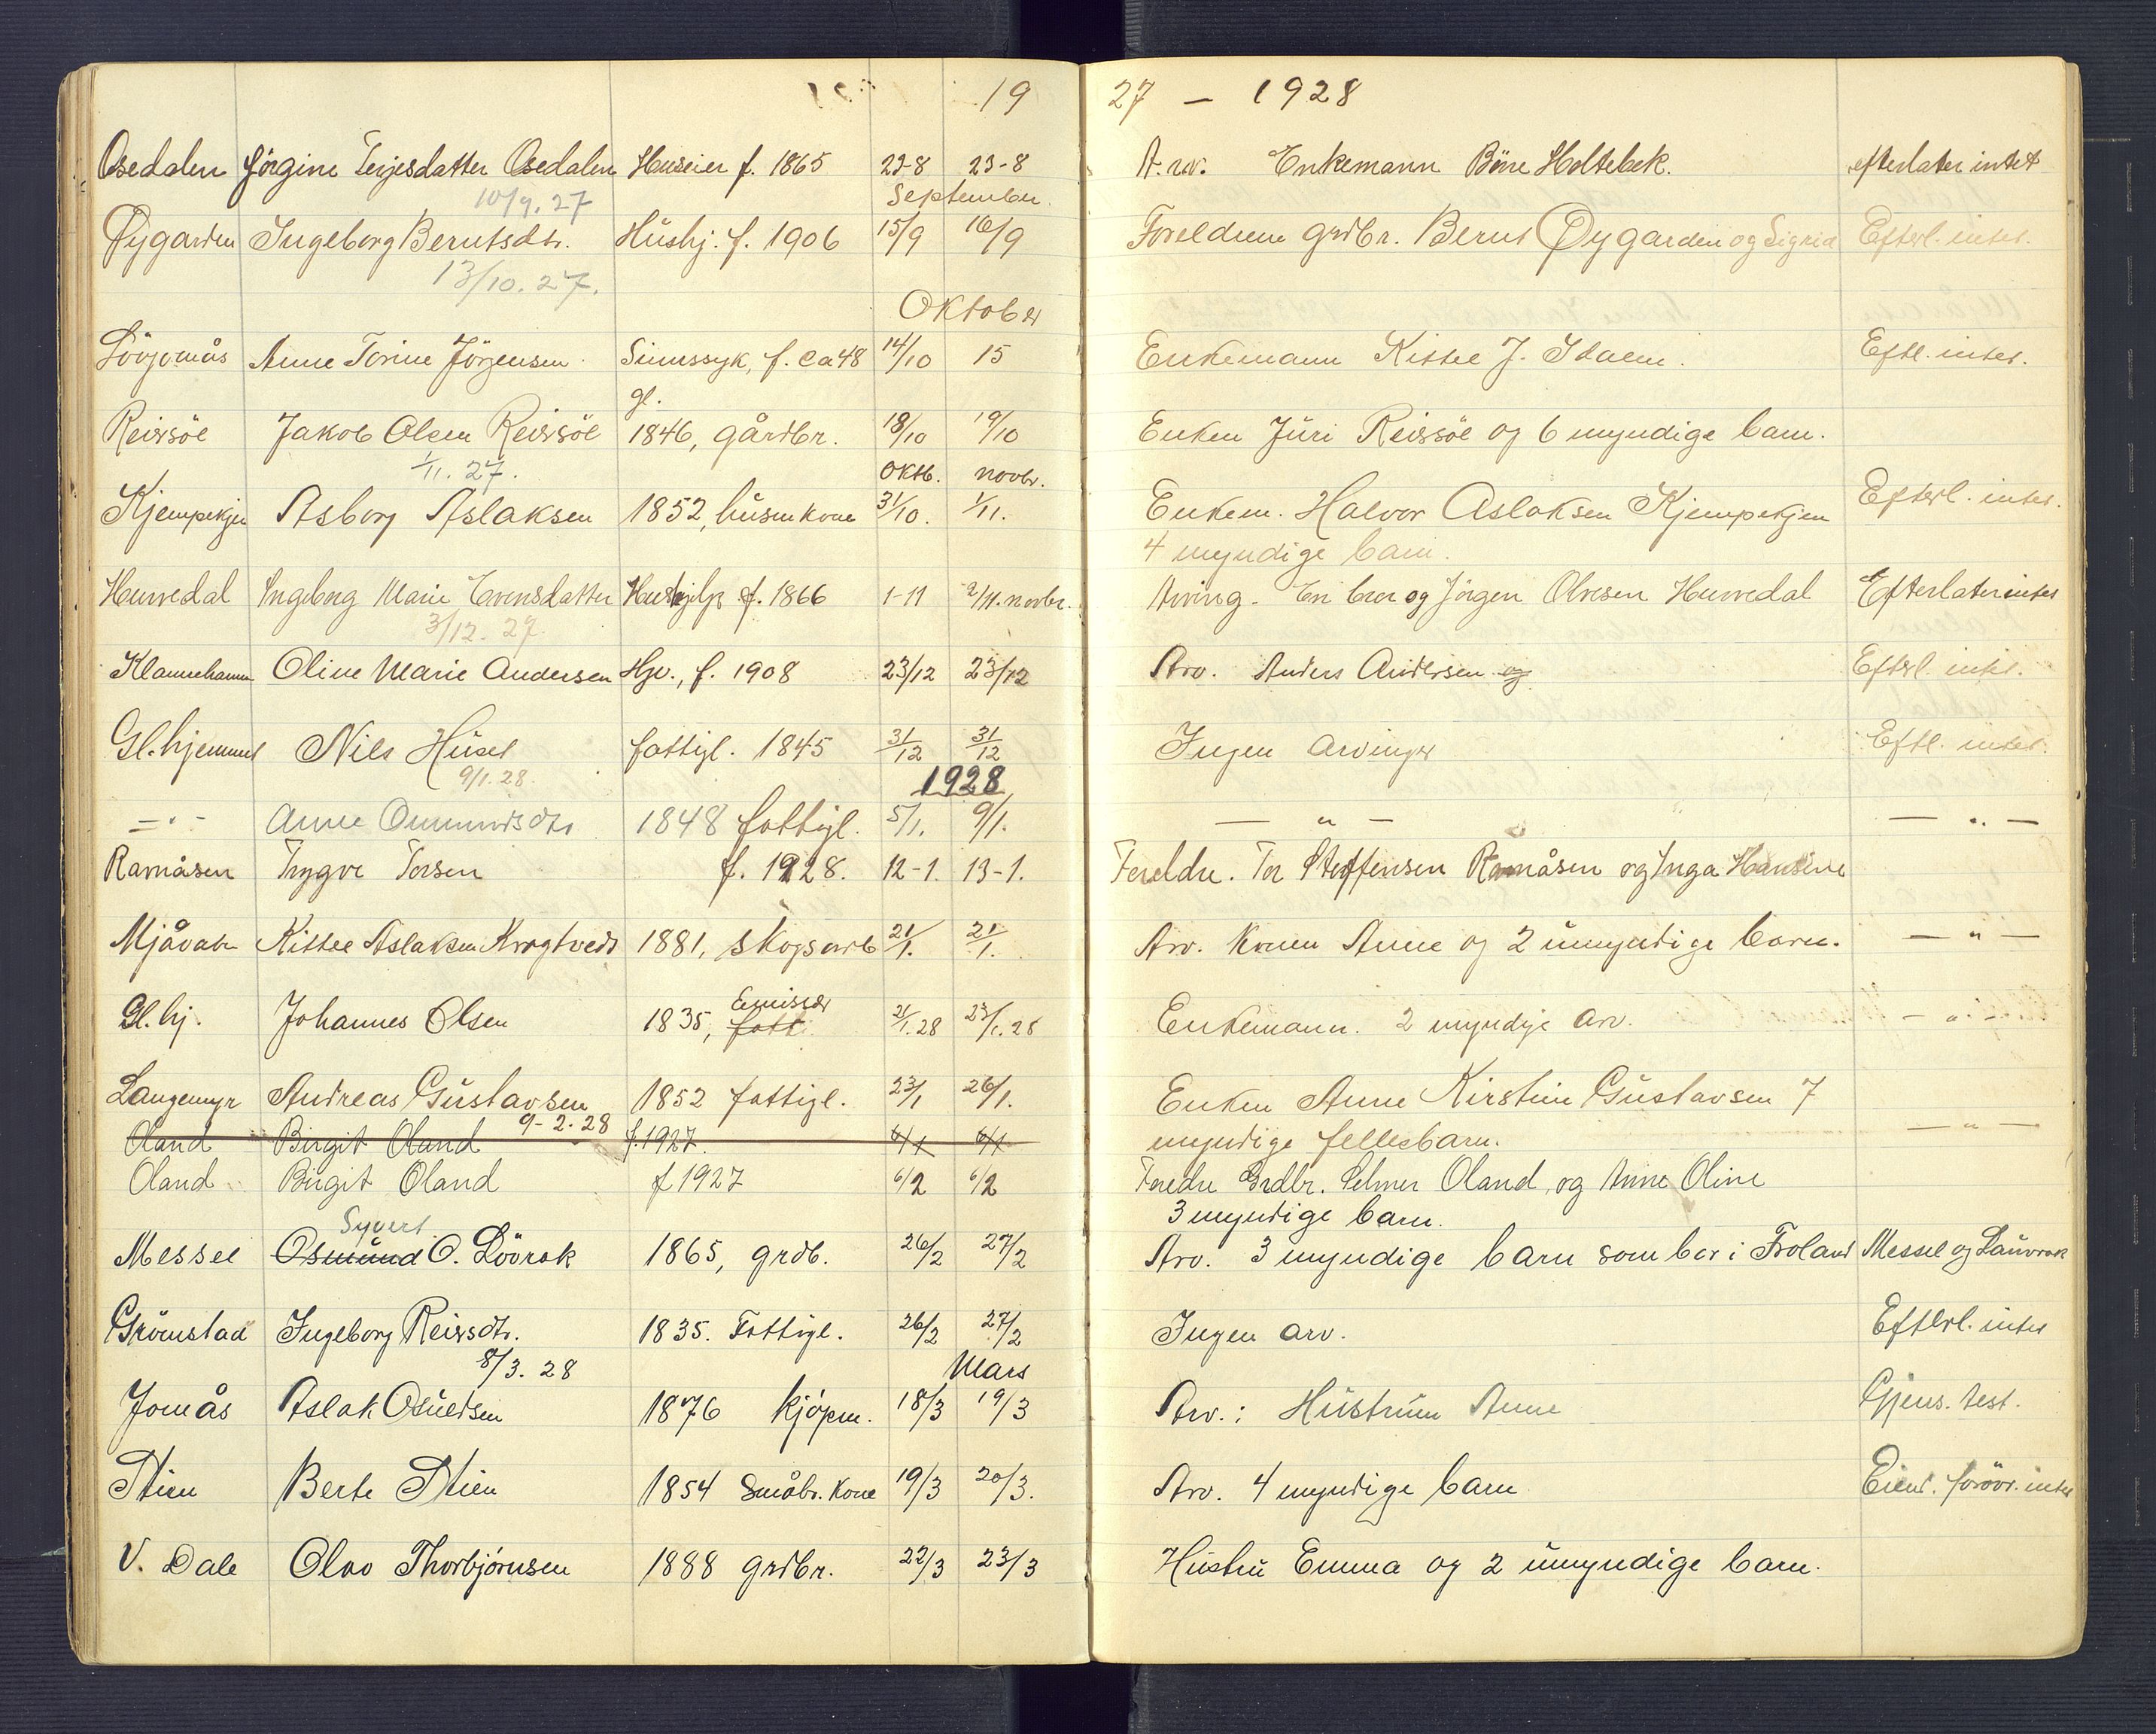 19 27 - 1928
Osedalen Jörgine Terjesdatter Osedalen Huseier f. 1865 22-8 23-8 Arv. Enkemann Böre Holtebek. efterlater intet
10/9. 27 September.
Øygarden Ingeborg Berntsdtr. Hushj. f. 1906 15/9 16/9 Foreldrene grdbr. Bernt Øygarden og Sigrid Efterl. intet.
13/10. 27.
Oktober
Anne Torine Jörgensen Sinnssyk, f. ca 48 14/10 15 Enkemann Kittel J. Eftl. intet.
gl.
Reiersöl Jakob Olsen Reiersöl 1846, gårdbr. 18/10 19/10 Enken Juri Reiersöl og 6 myndige barn.
1/11. 27. Oktb. novbr.
Kjempekjen Asborg Aslaksen 1852, husm kone 31/10. 1/11. Enkem. Halvor Aslaksen Kjempekjen Efterl. intet.
4 myndige barn.
Hurvedal Ingeborg Marie Evensdatter Hushjelp f. 1866 1-11 2/11. novbr. Arving. En bror og Jörgen Olvesen Hurvedal Efterlater intet
3/12. 27.
Oline Marie Andersen Hjv., f. 1908 23/12 23/12 Arv. Anders Andersen og Efterl. intet.
Gl. hjemmet Nils Huset fattigl. 1845 31/12 31/12 Ingen arvinger Eftl. intet.
9/1. 28. 1928
- " - Anne Ommundsdtr 1848 fattigl. 5/1. 9/1. - " - - " -
Ramåsen Trygve Torsen f. 1928. 12-1. 13-1. Foreldre. Tor Steffensen Ramåsen og Inga Hansine
Mjåvatn Kittel Aslaksen Krogtvedt 1881, skogsarb 21/1. 21/1. Arv. Konen Anne og 2 umyndige barn. - " -
Emissær
Gl. hj. Johannes Olsen 1835, fatt 21/1. 28 23/1. 28 Enkemann. 2 myndige arv. - " -
Langemyr Andreas Gustavsen 1852 fattigl. 23/1 26/1. Enken Anne Kirstine Gustavsen 7
9-2. 28
Oland Birgit Oland f. 1927. 6/1 6/1 myndige fellesbarn. - " -
Oland Birgit Oland f 1927 6/2 6/2 Foredre Grdbr. Selmer Oland, og Anne Oline
Sygert 3 myndige barn.
Messel Osmund O. Lövrak 1865, grdb. 26/2 27/2 Arv. 3 myndige barn som bor i Froland Messel og Lauvrak
Grömstad Ingeborg Reiersdtr. 1835. Fattigl. 26/2 27/2 Ingen arv. Efterl. intet
8/3. 28 Mars
Jomås Aslak Osuldsen 1876 kjöpm. 18/3 19/3 Arv.: Hustruen Anne Gjens. test.
Stien Berte Stien 1854 Småbr. kone 19/3 20/3. Arv. 4 myndige barn Eiend. forövr. intet
V. Dale Olav Thorbjörnsen 1888 grdbr. 22/3 23/3 Hustru Emma og 2 umyndige barn.